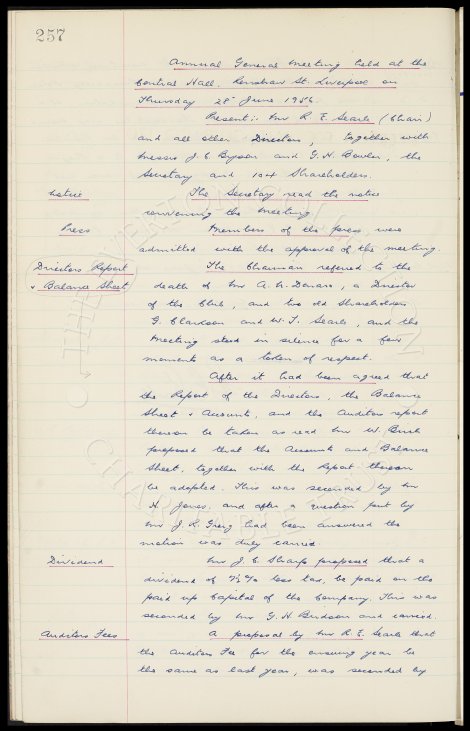 257
Annual General Meeting held at the
Central Hall, Renshaw St. Liverpool on
Thursday 28 June 1956.
Present:- Mr R. E. Searle (Chair)
and all other Directors, together with
Messrs J. C. and G. H. the
Secretary and 104 Shareholders.
Notice The Secretary read the notice
convening the meeting
Press Members of the press were
admitted with the approval of the meeting.
Directors Report The Chairman referred to the
& Balance Sheet death of Mr A. a Director
of the Club, and two old Shareholders
G. Clarkson and W. J. Searle, and the
meeting stood in silence for a few
moments as a token of respect.
After it had been agreed that
the Report of the Directors, the Balance
Sheet & Accounts, and the Auditors report
thereon be taken as read Mr W.
proposed that the Accounts and Balance
Sheet, together with the Report thereon
be adopted. This was seconded by Mr
H. Jones, and after a question put by
Mr J. K. Greig had been answered the
motion was duly carried.
Dividend Mr J. C. Sharp proposed that a
dividend of 7½% less tax, be paid on the
paid up Capital of the Company. This was
seconded by Mr G. H. and carried.
Auditors Fees A proposal by Mr R. E. Searle that
the Auditors Fee for the ensuing year be
the same as last year, was seconded by